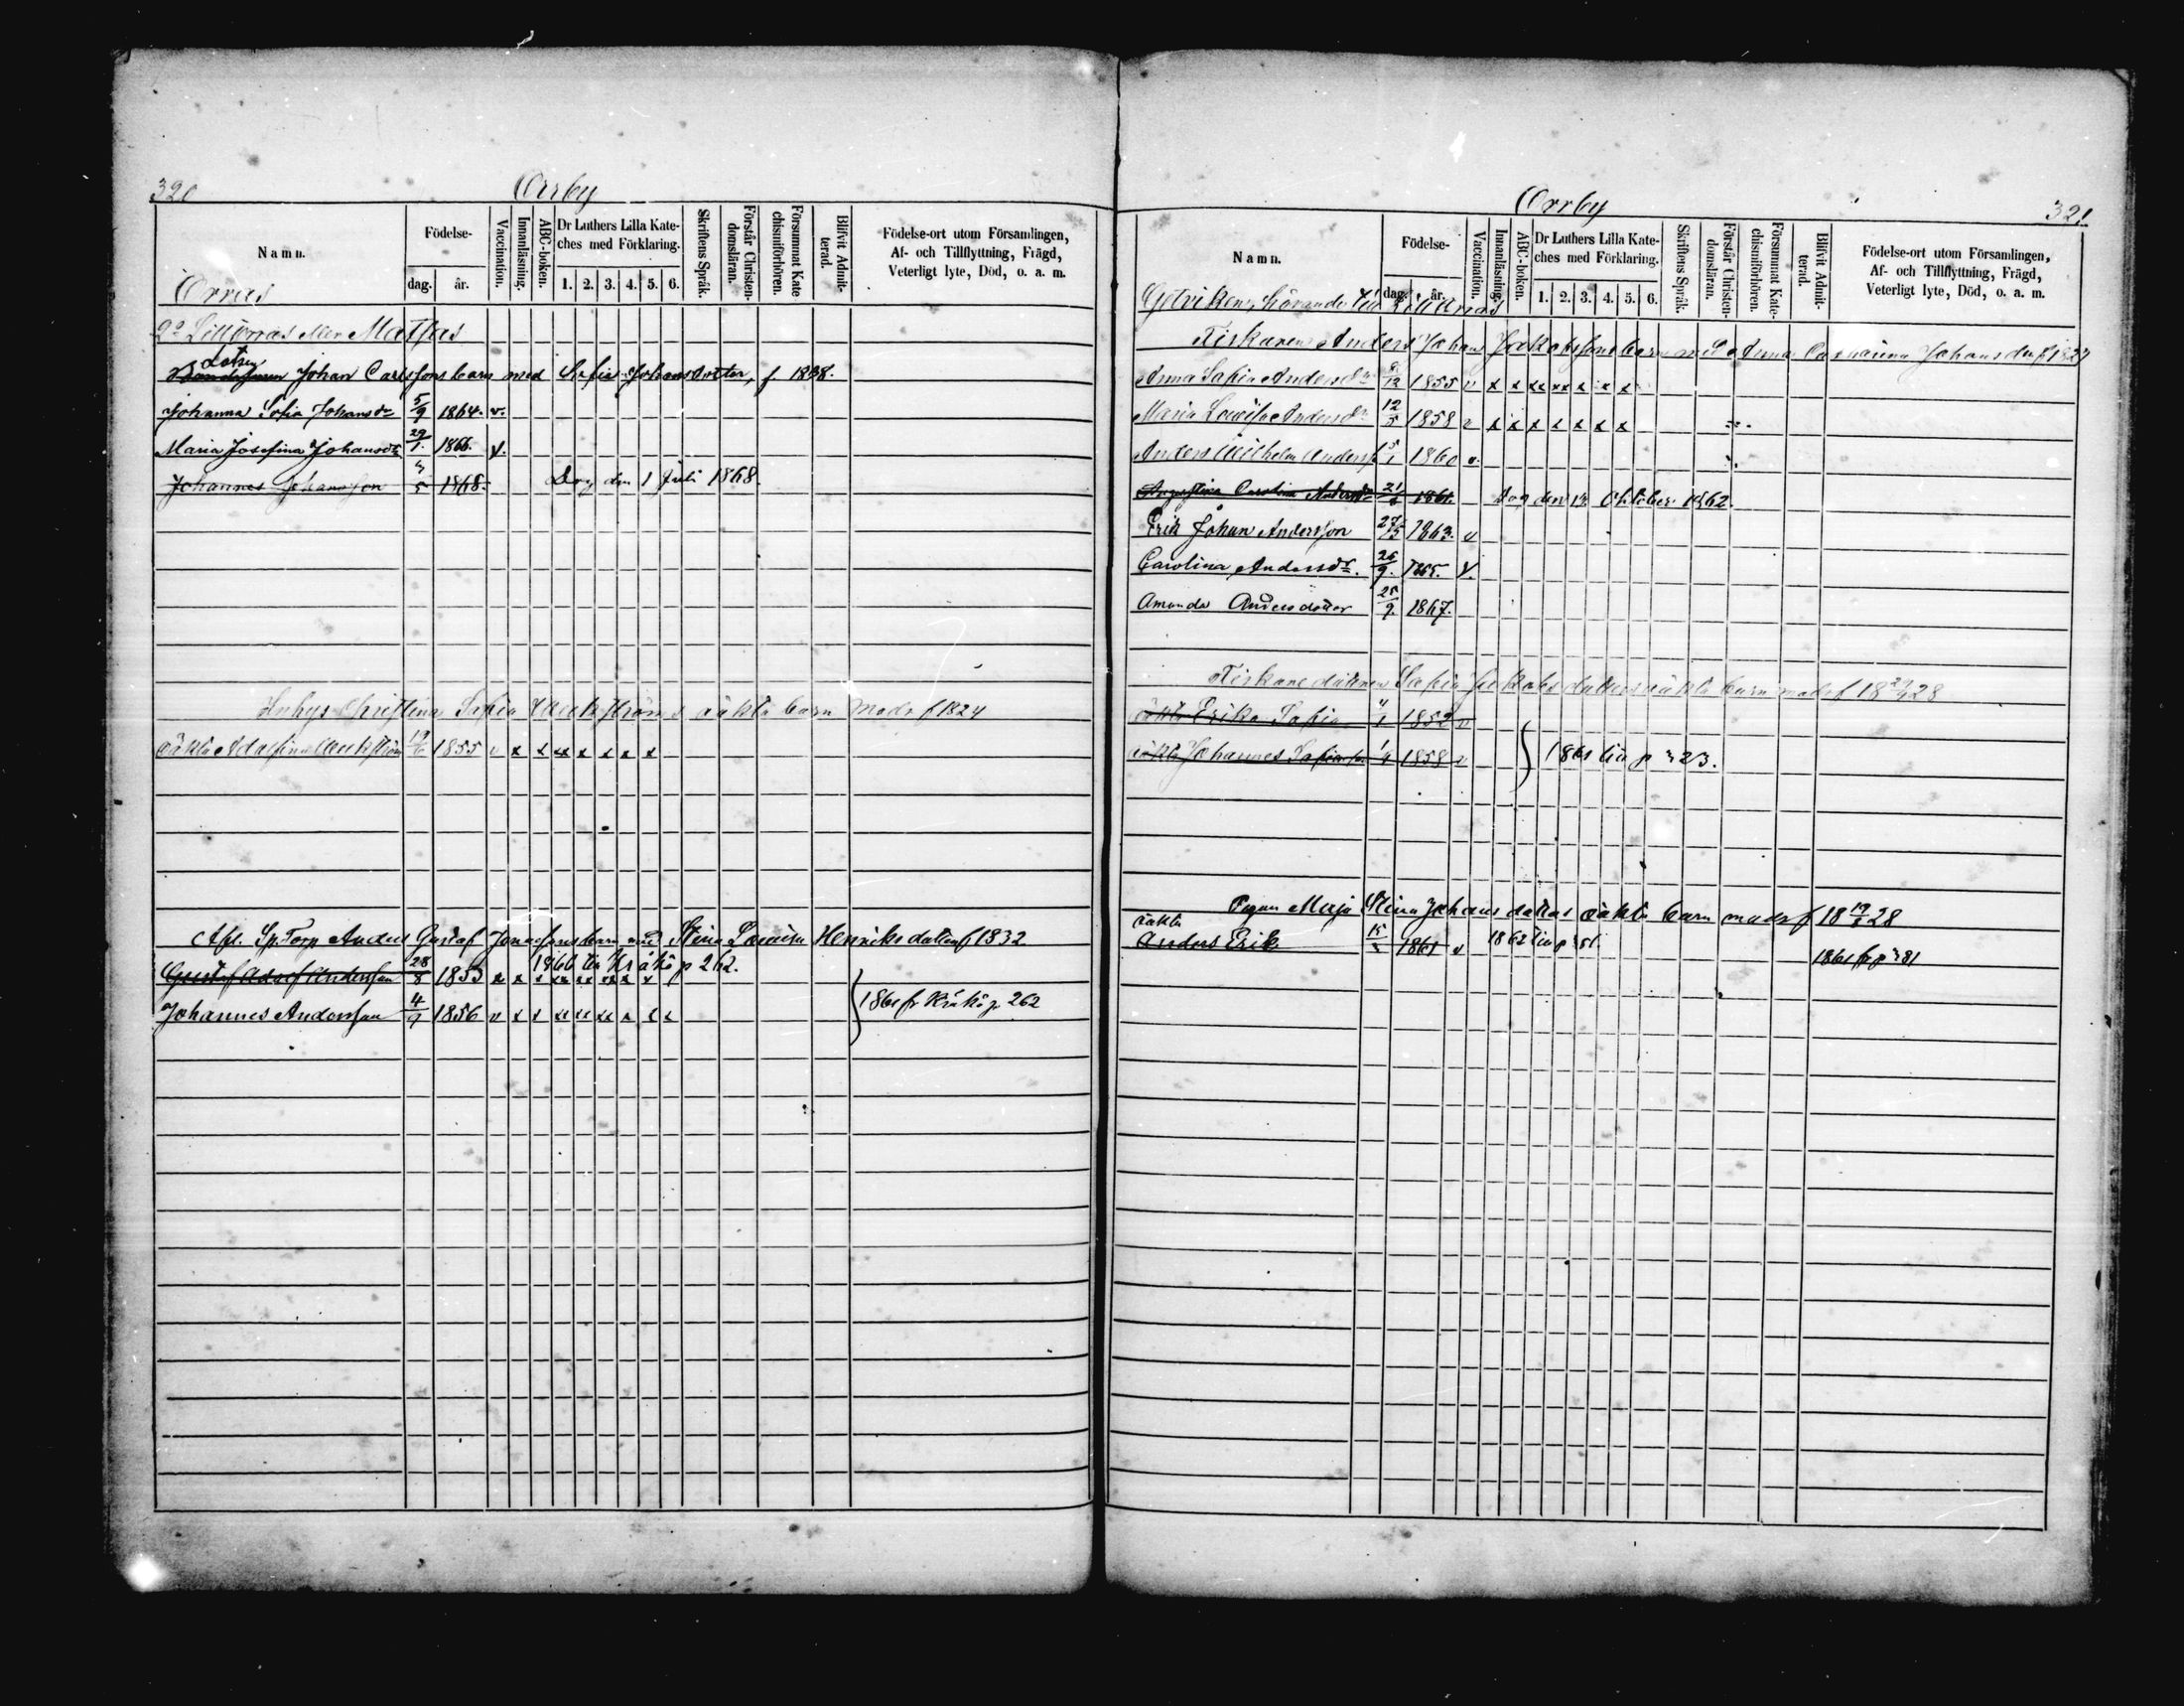 320
Orrby
Namn.
Födelse-
dag.
år.
Vaccination.
Innanläsning.
ABC-boken.
Dr Luthers Lilla Kate-
ches med Förklaring.
1. 2. 3. 4. 5. 6.
Skriftens Språk.
Förstår Christen-
domsläran.
Försummat Kate
chismiförhören.
Blifvit Admit-
terad.
Födelse-ort utom Församlingen,
Af- och Tillflyttning, Frägd,
Veterligt lyte, Död, o. a. m.
Orrnäs
2o Lillörnäs eller Mattas
Lotsen
Bondesonen Johan Carlssons barn med Sofia Johansdotter, f. 1838.
Johanna Sofia Johansdr 5/9 1864. v.
Maria Josefina Johansdr 29/1. 1866. v.
Johannes Johansson 4/5 1868. Dog den 1 Juli 1868.
Inhys Christina Sofia oäkta barn modr f 1824
oäkta Adolfina 19/6 1855 v x x xx x x x x
Afsk. Sp. Torp Anders Gustaf Jonassons barn med Stina Lovisa Henriksdotter f 1832
1866 till Kråkö p 262.
Gustaf Adolf Andersson 28/8 1853 x x x xx xx xx x v
Johannes Andersson 4/9 1856 v x x xx xx xx x x x
1861 fr Kråkö p 262
Orrby
321
Namn.
Födelse-
dag.
år.
Vaccination.
Innanläsning.
ABC-boken.
Dr Luthers Lilla Kate-
ches med Förklaring.
1. 2. 3. 4. 5. 6.
Skriftens Språk.
Förstår Christen-
domsläran.
Försummat Kate-
chismiförhören.
Blifvit Admit-
terad.
Födelse-ort utom Församlingen,
Af- och Tillflyttning, Frägd,
Veterligt lyte, Död, o. a. m.
Getviken, hörande till
Fiskaren Anders Johan Jakobssons barn med Anna Catharina Johansdr f 1827
Anna Sofia Andersdr 8/12 1855 v x x xx xx x x x
Maria Lovisa Andersdr 12/5 1858 v x x x x x x x
Anders Wilhelm Anderss 1860 v.
Augustina Carolina Andersdr 21/6 1861. Dog den 12 Oktober 1862.
Erik Johan Andersson 27/3 1863. v
Carolina Andersdr. 26/9. 1865. v.
Amanda Andersdotter 25/9. 1867.
Fiskaredottren Sofia Jakobsdotters oäkta barn modr f 1828
oäkta Erika Sofia 4/1 1852 v
oäkta Johannes 1858 v
1861 till p 323.
Pigan Maja Stina Johansdotters oäkta barn modr f 18 28
oäkta
Anders Erik 1861 v
1861 fr p 381